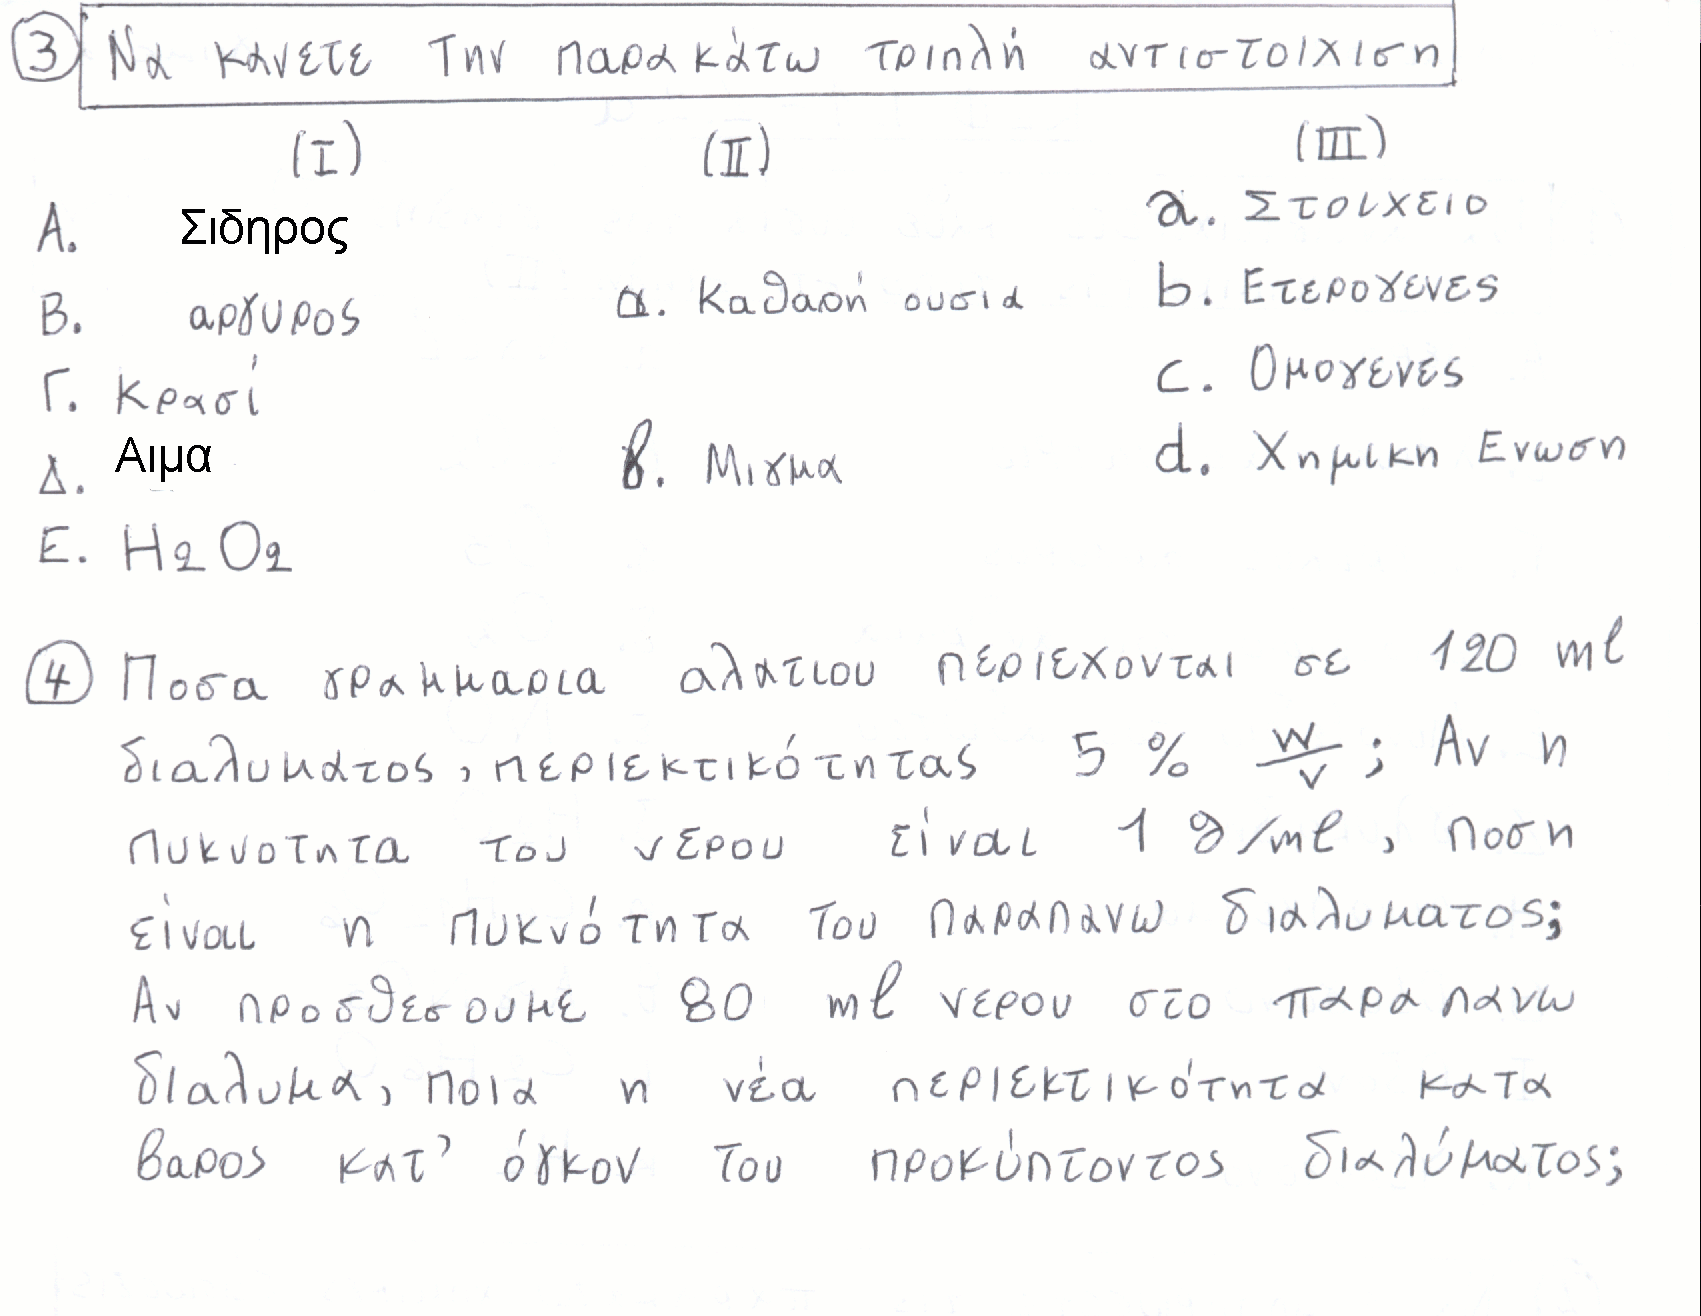 3 Να κανετε την παρακάτω τριπλή αντιστοιχιση
(I) (II) (III)
Α. Σιδηρος
Β. αργυρος
Γ. Κρασί
Δ. Αιμα
Ε. H2O2
α. Καθαρή ουσια
β. Μιγμα
a. Στοιχειο
b. Ετερογενες
c. Ομογενες
d. Χημικη Ενωση
4 Ποσα γραμμαρια αλατιου περιεχονται σε 120 ml
διαλυματος, περιεκτικότητας 5 % w/v ; Αν η
πυκνοτητα του νερου είναι 1 g/ml , ποση
είναι η πυκνότητα του παραπανω διαλυματος;
Αν προσθεσουμε 80 ml νερου στο παραπανω
διαλυμα, ποια η νέα περιεκτικότητα κατα
βαρος κατ' όγκον του προκύπτοντος διαλύματος;